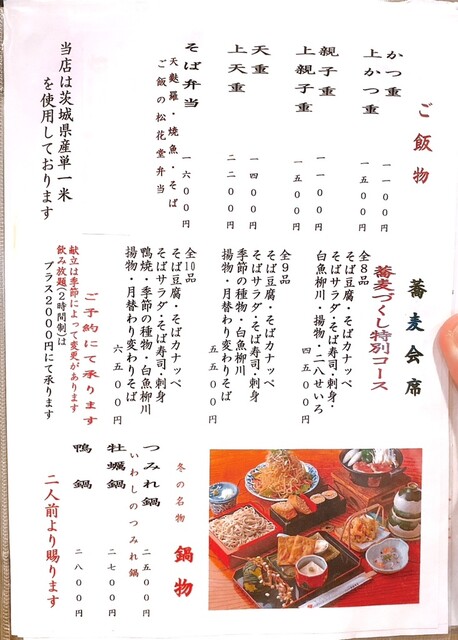 ご飯物
かつ重 一一〇〇円
上かつ重 一五〇〇円
親子重 一一〇〇円
上親子重 一五〇〇円
天重 一四〇〇円
上天重 二二〇〇円
そば弁当 一六〇〇円
天麩羅・焼魚・そば
ご飯の松花堂弁当
当店は茨城県産単一米
を使用しております
蕎麦会席
蕎麦づくし特別コース
全8品
そば豆腐・そばカナッペ
そばサラダ・そば寿司・刺身・
白魚柳川・揚物・二八せいろ
四五〇〇円
全9品
そば豆腐・そばカナッペ
そばサラダ・そば寿司・刺身
季節の種物・白魚柳川
揚物・月替わり変わりそば
五五〇〇円
全10品
そば豆腐・そばカナッペ
そばサラダ・そば寿司・刺身
鴨焼・季節の種物・白魚柳川
揚物・月替わり変わりそば
六五〇〇円
ご予約にて承ります
献立は季節によって変更があります
飲み放題(2時間制)は
プラス2000円にて承ります
冬の名物 鍋物
つみれ鍋 二五〇〇円
いわしのつみれ鍋
牡蠣鍋 二七〇〇円
鴨鍋 二八〇〇円
二人前より賜ります